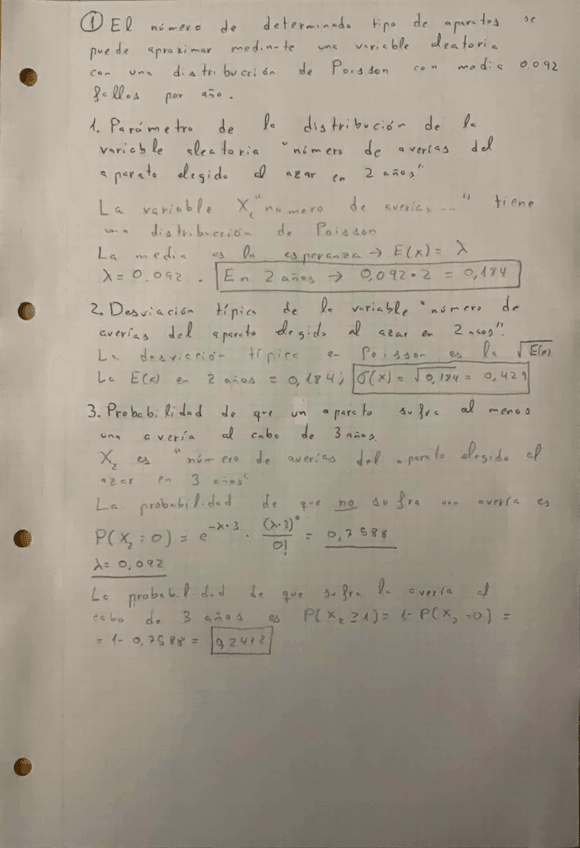 ① El número de determinado tipo de aparatos se
puede aproximar medinate una variable aleatoria
con una distribucción de Poisson con media 0.092
fallos por año.
1. Parámetro de la distribución de la
variable aleatoria "número de averías del
aparato elegido al azar en 2 años"
La variable X₁ "número de averías ..." tiene
una distribucción de Poisson
La media es la esperanza → E(x) = λ
λ = 0.092 . En 2 años → 0,092·2 = 0,184
2. Desviación típica de la variable "número de
averías del aparato elegido al azar en 2 años".
La desviación típica en Poisson es la √E(x)
La E(x) en 2 años = 0,184; σ(x) = √0,184 = 0,429
3. Probabilidad de que un aparato sufra al menos
una avería al cabo de 3 años.
X₂ es "número de averías del aparato elegido al
azar en 3 años"
La probabilidad de que no sufra una avería es
P(X₂ = 0) = e^(-λ·3) · (λ·3)⁰/0! = 0,7588
λ = 0,092
La probabilidad de que sufra la avería al
cabo de 3 años es P(X₂ ≥ 1) = 1 - P(X₂ = 0) =
= 1 - 0,7588 = 0,2412